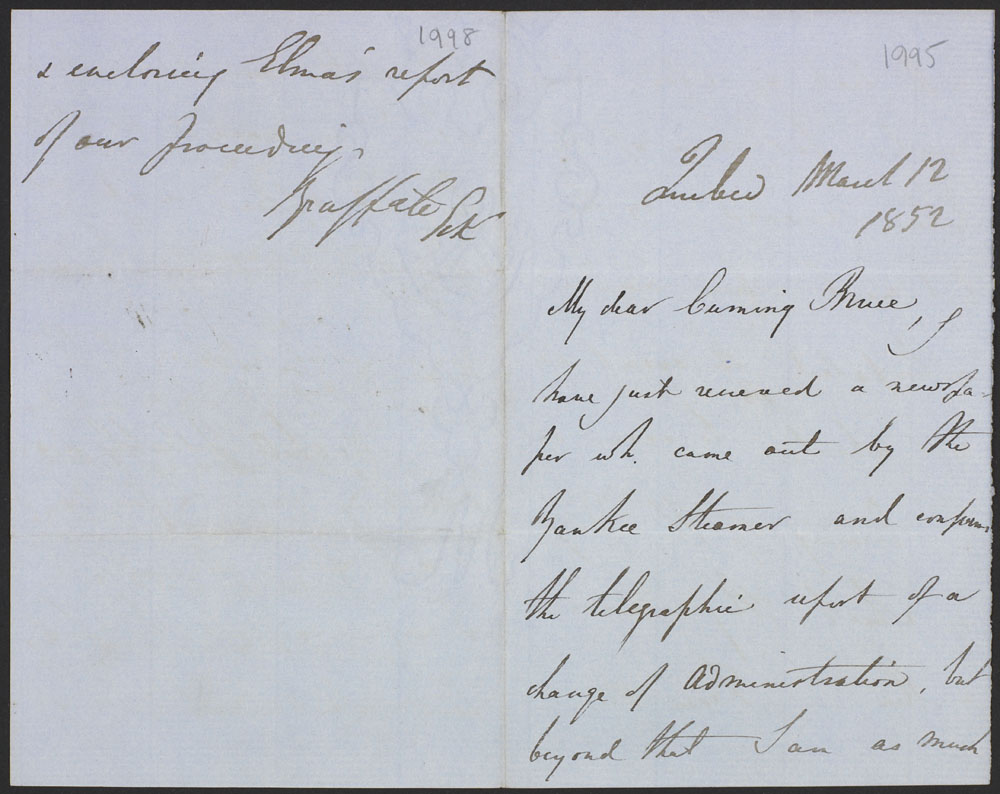 1998
& enclosing Elma's report
of our proceedings
Yrs aff'ate
E&K
1995
Quebec March 12
1852
My dear Cuming Bruce, I
have just received a newspa-
per wh. came out by the
Yankee Steamer and confirms
the telegraphic report of a
change of Administration, but
beyond that I am as much